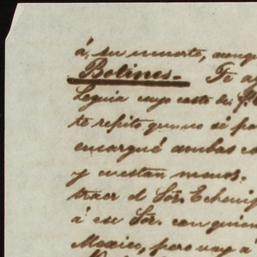 á, su muerte, aunq
Botines.- Te a
Leguia cuyo costo de
te repito que no sé
encargué ambas co
y cuestan menos.
traer el Sór. Echeniq
á ese Sór. con quien
Mexico, pero voy á